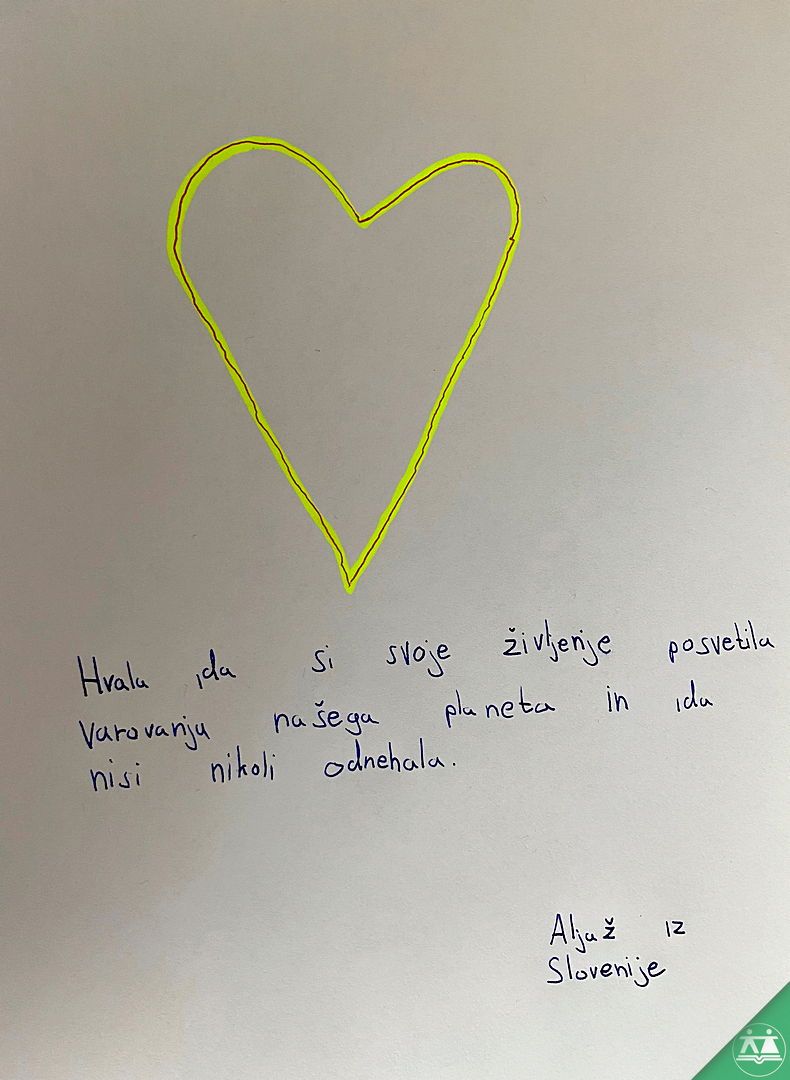 Hvala ,da si svoje življenje posvetila
varovanju našega planeta in ,da
nisi nikoli odnehala.
Aljaž iz
Slovenije